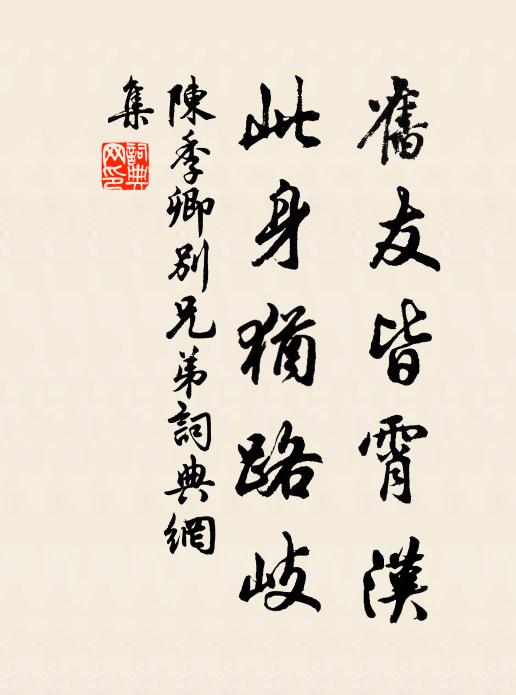 舊友皆霄漢
此身猶路岐
陳季卿別兄弟詞典網
集
詞典
网印